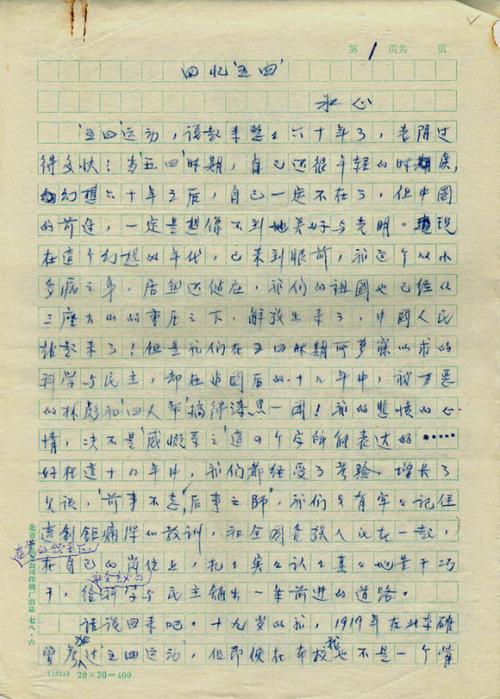 第 1 页共 页
回忆“五四”
冰心
“五四”运动，说起来整々六十年了，光阴过
得多快！当“五四”时期，自己还很年轻的时候，
幻想六十年之后，自己一定不在了，但中国
的前途，一定是想像不到地美好与光明。现
在这个幻想的年代，已来到眼前，我这个从小
多病之身，居然还健在，我们的祖国也已经从
三座大山的重压之下，解放出来了，中国人民
站起来了！但是我们在五四时期所梦寐以求的
科学与民主，却在建国后的十几年中，被万恶
的林彪和“四人帮”搞得漆黑一团！我的悲愤的心
情，决不是“感慨系之”这四个字所能表达的……
好在这十几年中，我们都经受了考验，增长了
见识，“前事不忘，后事之师”，我们只有牢々记住
这创钜痛深的教训，和全国各族人民在一起，
在党的领导下
在自己的岗位上，扎々实々认々真々地苦干巧
干，给科学与民主铺出一条前进的道路。
话说回来吧。十九岁的我，1919年在北京确
曾参加过“五四运动”，但即使在本校我也不是一个骨
(1523) 20×20=400